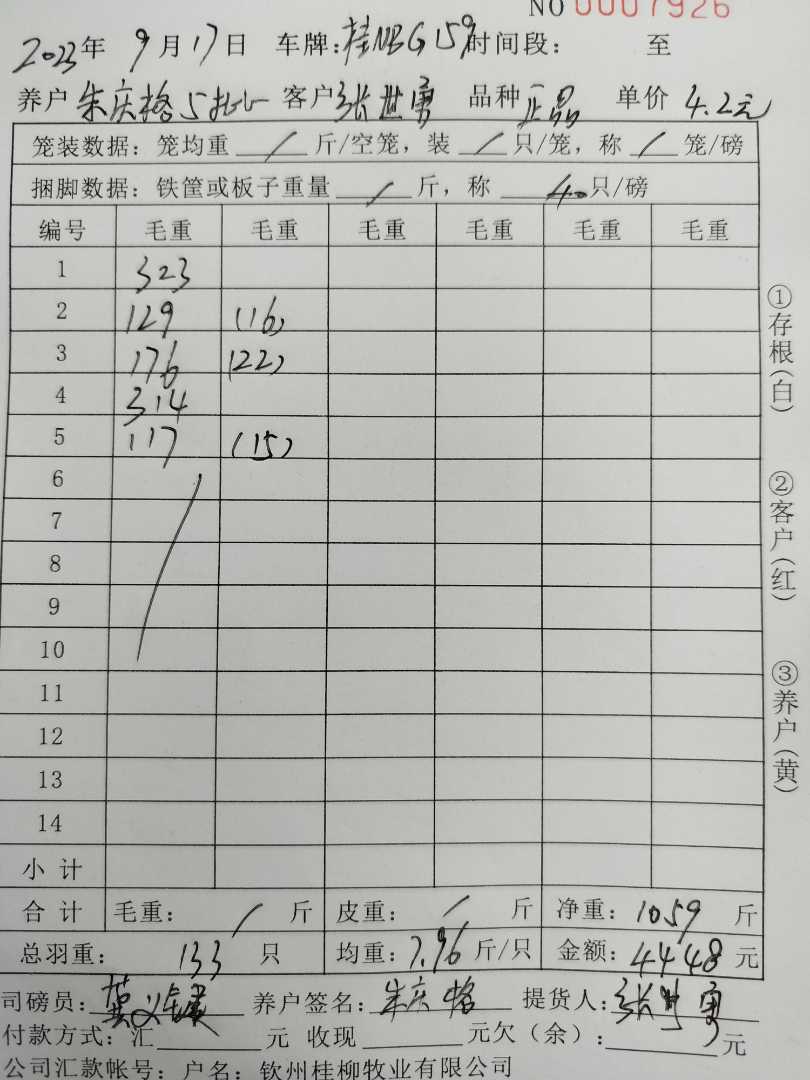 NO 0007926
2023年 9月17日 车牌:桂NBG159 时间段: 至
养户 朱庆格5批 客户 张世勇 品种 正品 单价 4.2元
笼装数据: 笼均重 / 斤/空笼, 装 / 只/笼, 称 / 笼/磅
捆脚数据: 铁筐或板子重量 / 斤, 称 40只/磅
编号 毛重 毛重 毛重 毛重 毛重 毛重
1 323
2 129 (16)
3 176 (22)
4 314
5 117 (15)
6
7
8
9
10
11
12
13
14
小计
合计 毛重: / 斤 皮重: / 斤 净重: 1059 斤
总羽重: 133 只 均重: 7.96 斤/只 金额: 4448 元
司磅员: 养户签名: 朱庆格 提货人: 张世勇
付款方式: 汇 元 收现 元欠(余): 元
公司汇款帐号: 户名: 钦州桂柳牧业有限公司
①存根(白)
②客户(红)
③养户(黄)